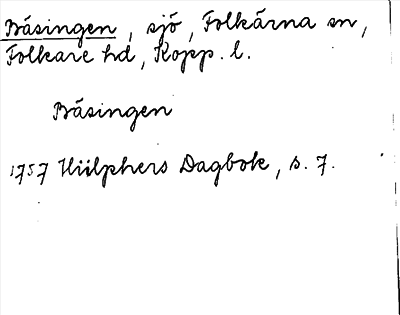 Båsingen, sjö, Folkärna sn,
Folkare hd, Kopp. l.
Båsingen
1757 Hülphers Dagbok, s. 7.